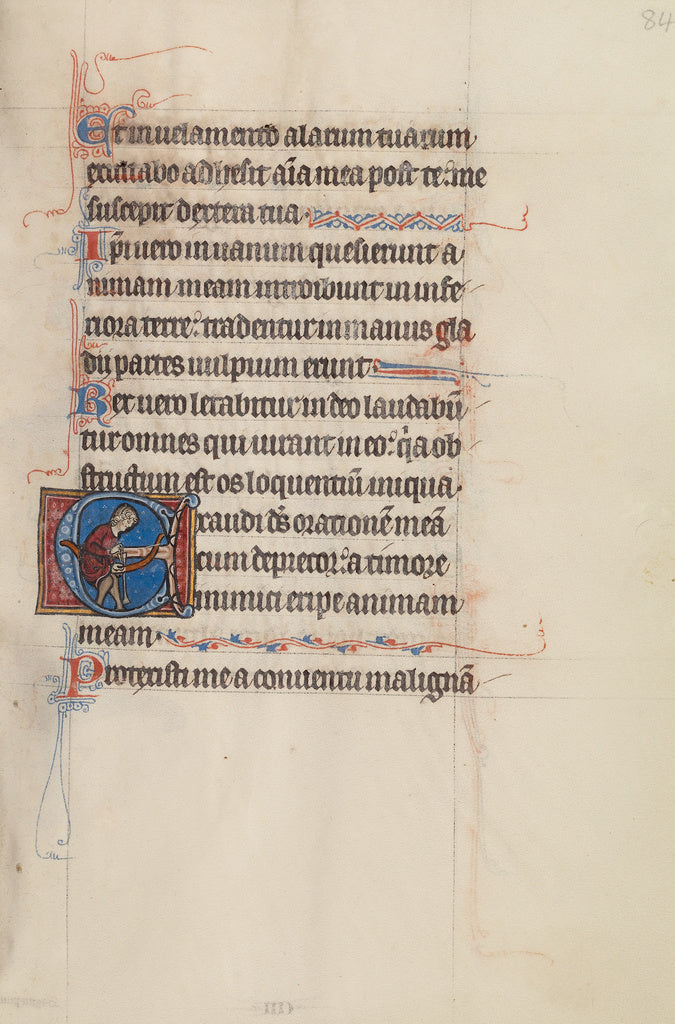 84
Et in uelamento alarum tuarum
exultabo adhesit aīa mea post te: me
suscepit dextera tua.
Ipi uero in uanum quesierunt a
nimam meam introibunt in infe
riora terre: tradentur in manus gla
dii partes uulpium erunt
Rex uero letabitur in deo laudabū
tur omnes qui iurant in eo: q̄a ob
structum est os loquentiū iniqua.
Exaudi d̄s orationē meā
cum deprecor: a timore
inimici eripe animam
meam.
Protexisti me a conuentu malignā